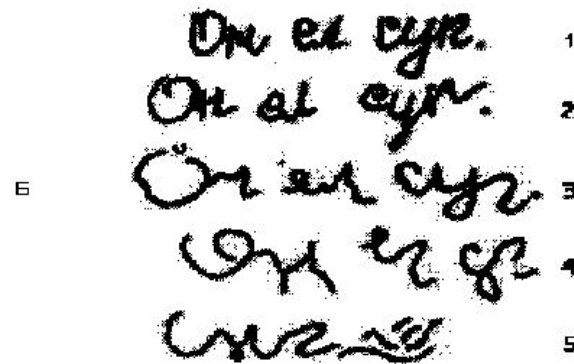 Он ел суп. 1
Он ел суп. 2
Б Он ел суп. 3
Он ел 4
5